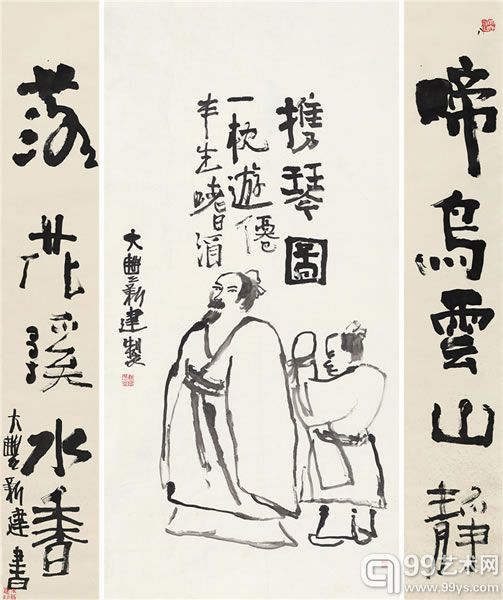 啼鳥雲山靜
攜琴圖
一枕遊僊
半生嗜酒
大豐新建製
落花溪水香
大豐新建書
99艺术网
www.99ys.com